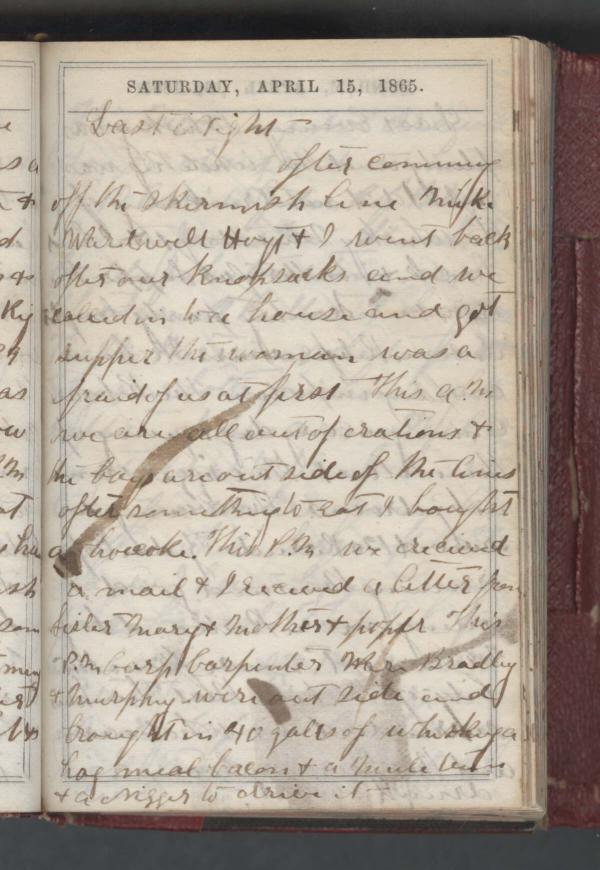 SATURDAY, APRIL 15, 1865.
Last Night
after comming
off the skirmish line Mike
Wardwell Hoyt & I went back
after our knapsacks and we
called in to a house and got
supper the woman was a
fraid of us at first This a.m
we are all out of rations &
the boys are out side of the lines
after something to eat I bought
a hoecake. This P.M we received
a mail & I received a letter from
Sister Mary & Mother & paper This
P.M Corp Carpenter Bradley
& Murphy were out side and
brought in 40 galls of whiskey a
hog meal bacon & a Mule team
& a nigger to drive it